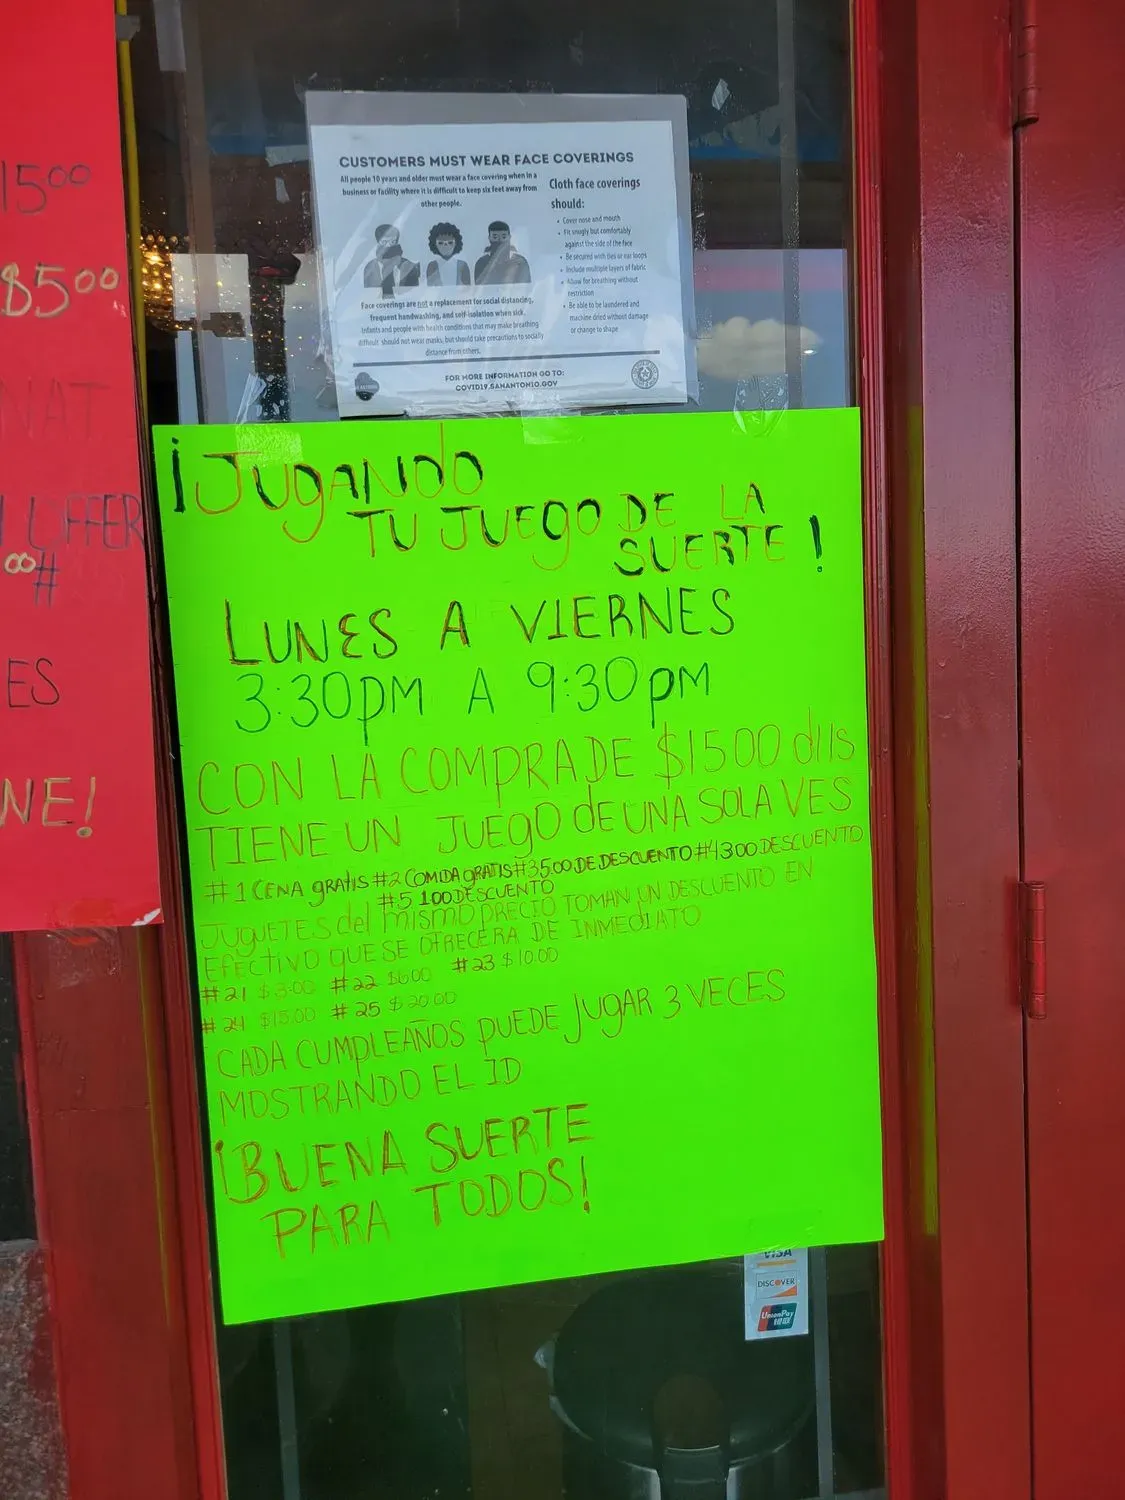 1500
$500
NAT
OFFER
00#
ES
NE!
CUSTOMERS MUST WEAR FACE COVERINGS
All people 10 years and older must wear a face covering when in a
business or facility where it is difficult to keep six feet away from
other people.
Cloth face coverings
should:
• Cover nose and mouth
• Fit snugly but comfortably
against the side of the face
• Be secured with ties or ear loops
• Include multiple layers of fabric
• Allow for breathing without
restriction
• Be able to be laundered and
machine dried without damage
or change to shape
Face coverings are not a replacement for social distancing,
frequent handwashing, and self-isolation when sick.
Infants and people with health conditions that may make breathing
difficult should not wear masks, but should take precautions to socially
distance from others.
FOR MORE INFORMATION GO TO:
COVID19.SANANTONIO.GOV
¡JUGANDO
TU JUEGO DE LA
SUERTE!
LUNES A VIERNES
3:30PM A 9:30PM
CON LA COMPRA DE $1500 dlls
TIENE UN JUEGO de UNA SOLA VES
#1 CENA gRATIS #2 COMIDA gRATIS #3 5.00 DE DESCUENTO #4 3.00 DESCUENTO
#5 1.00 DESCUENTO
JUGUETES del MISMO PRECIO TOMAN UN DESCUENTO EN
EFECTIVO QUE SE OFRECERA DE INMEDIATO
#21 $3.00 #22 $6.00 #23 $10.00
#24 $15.00 #25 $20.00
CADA CUMPLEAÑOS PUEDE JUGAR 3 VECES
MOSTRANDO EL ID
¡BUENA SUERTE
PARA TODOS!
VISA
DISCOVER
UnionPay
银联